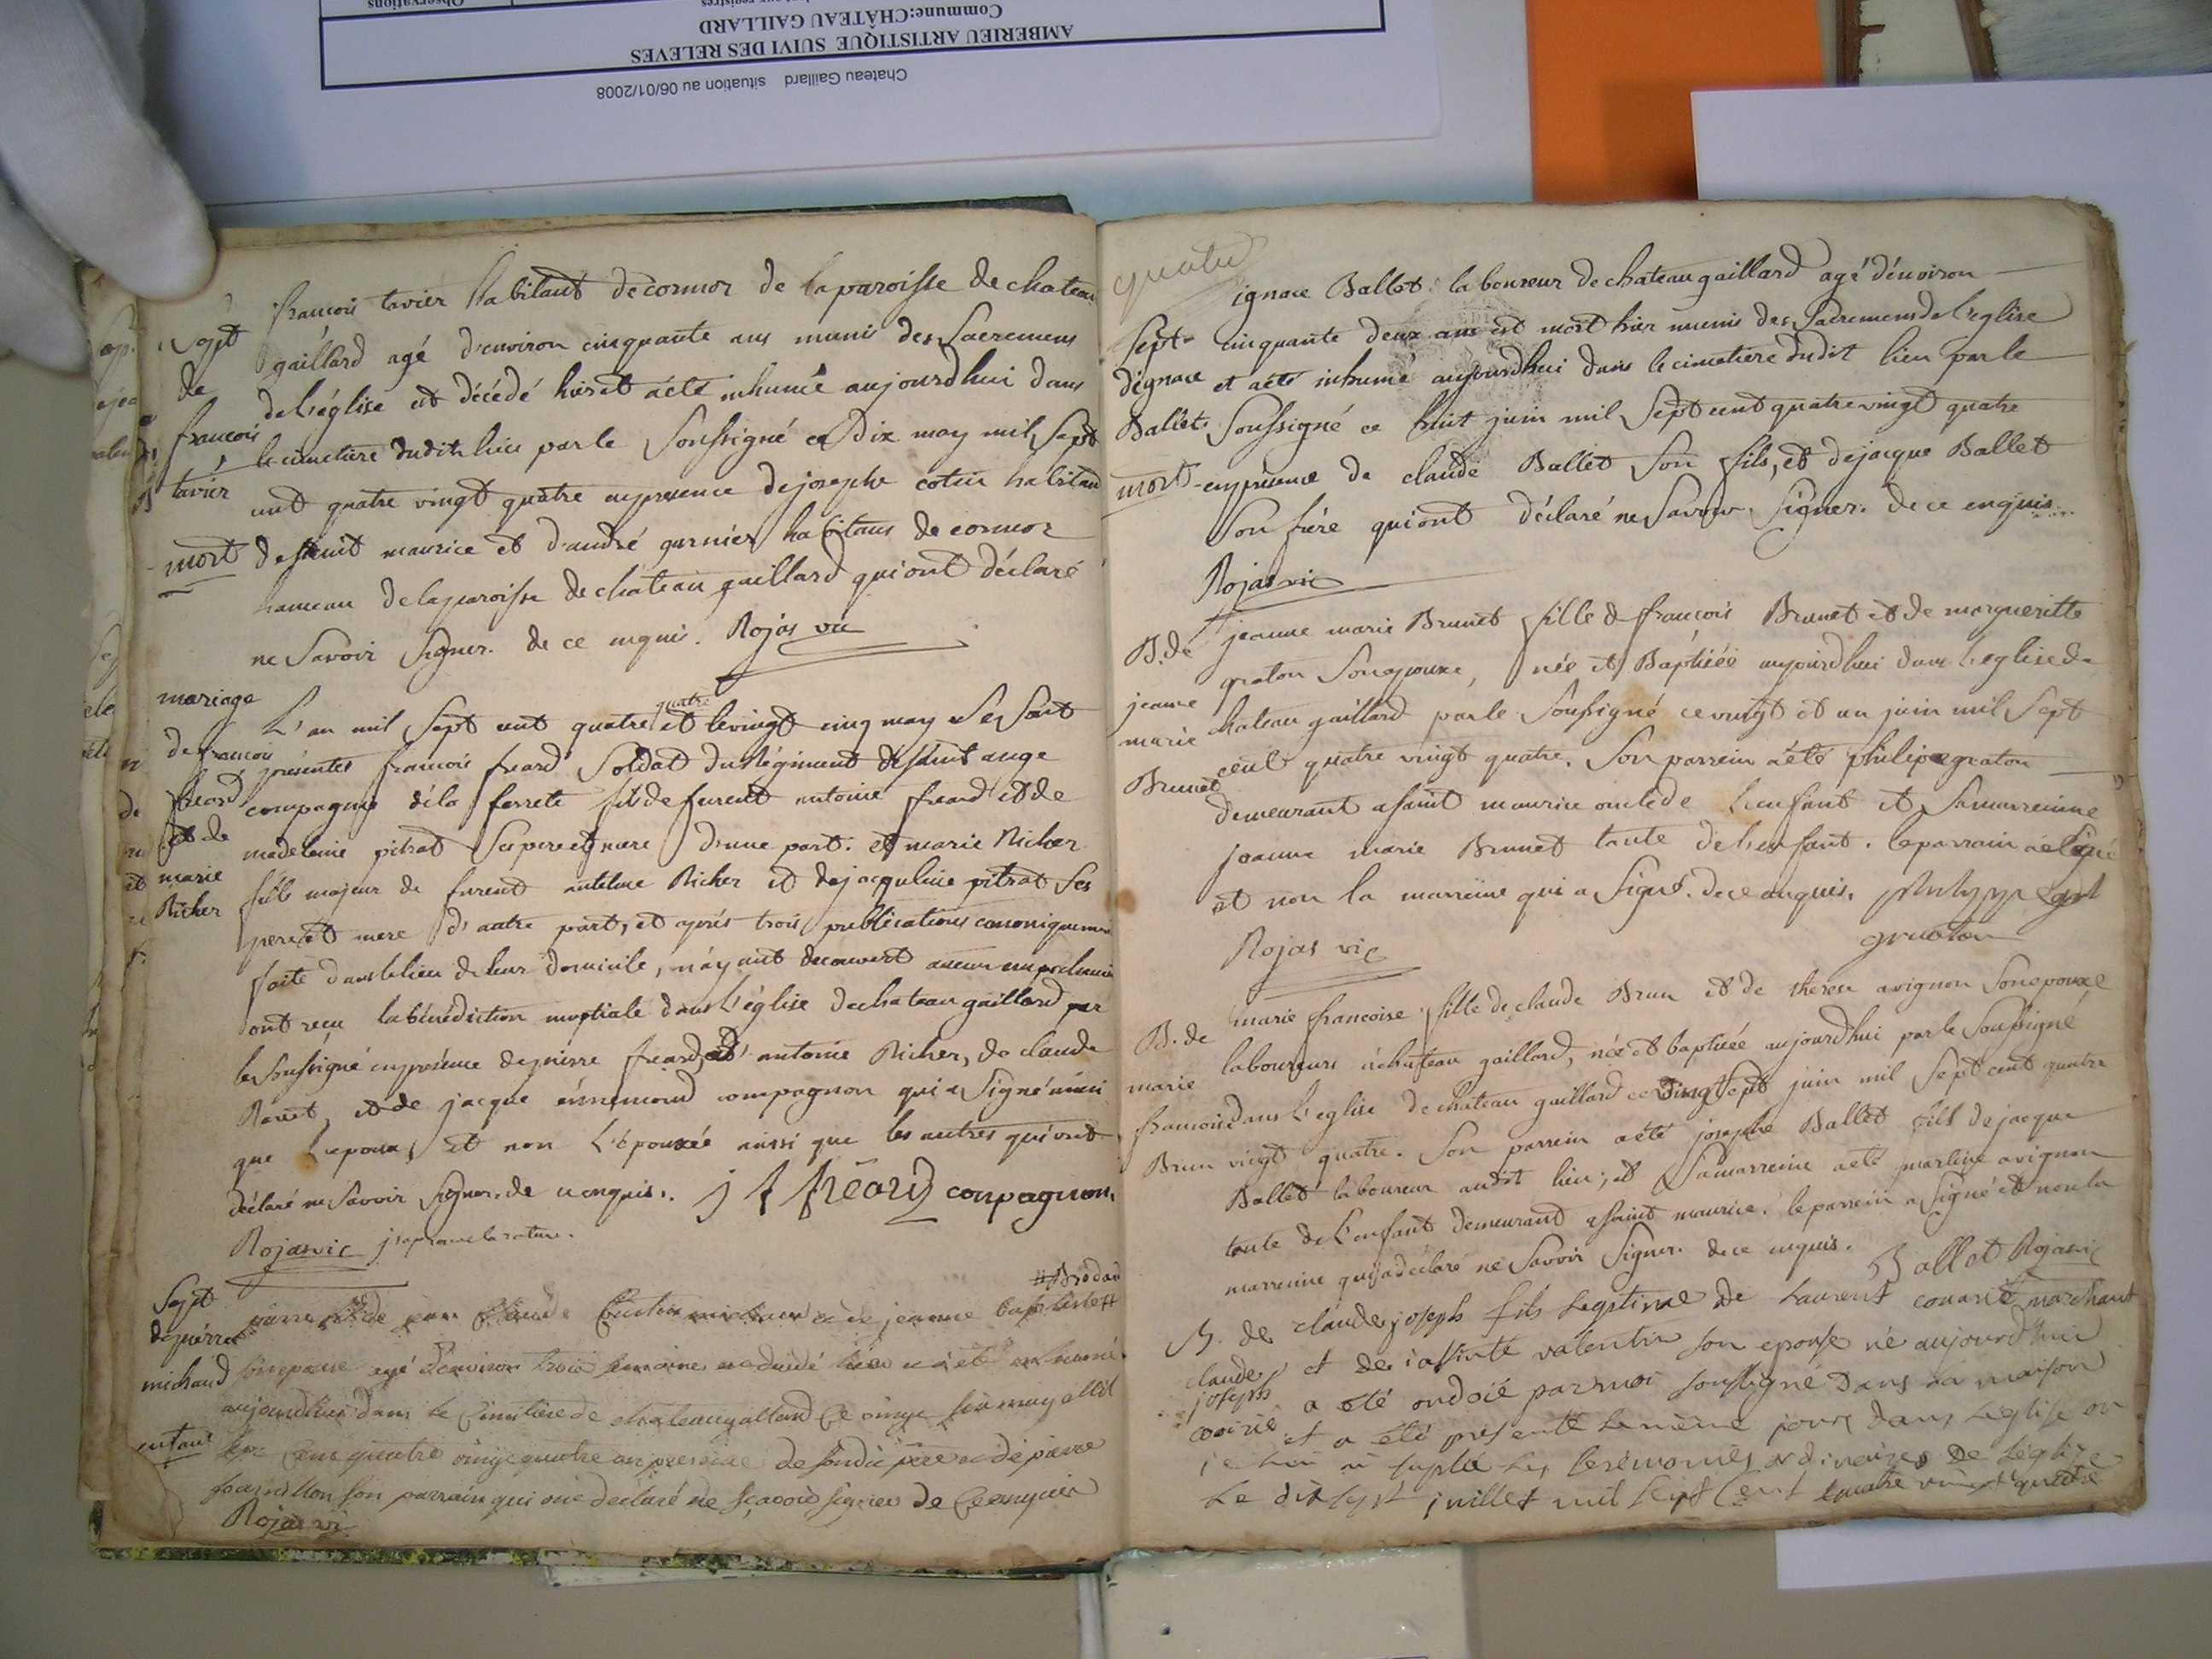 Chateau Gaillard situation au 06/01/2008
AMBERIEU ARTISTIQUE SUIVI DES RELEVES
Commune:CHÂTEAU GAILLARD
Observations
registres
Sept
de
francois
tavier
mort
francois tavier habitant de cormor de la paroisse de chateau
gaillard agé d'environ cinquante ans munis des Sacremens
de l'église est décédé hier et a été inhumé aujourd'hui dans
le cimetiere dudit lieu par le Soussigné ce Dix may mil Sept
cent quatre vingt quatre en presence de josephe cotin habitant
de saint maurice et d'andré garnier habitans de cormor
hameau de la paroisse de chateau gaillard qui ont déclaré
ne Savoir Signer. de ce enquis. Rojas vic
mariage
de francois
freard
et de
marie
Richer
L'an mil Sept cent quatre quatre et le vingt cinq may Se Sont
présentés francois freard Soldat du Régiment de saint ange
compagnie de la ferrete fils de furent antoine freard et de
madeleine pitrat Ses pere et mere d'une part. et marie Richer
fille majeur de furent antelme Richer et de jacqueline pitrat Ses
pere et mere d'autre part, et aprés trois publications canoniquement
faite dans le lieu de leur domicile, n'ayant decouvert aucun empechement
ont recu la bénédiction nuptiale dans l'église de chateau gaillard par
le Soussigné en présence de pierre freard, et d'antoine Richer, de claude
Ravet, et de jacque ennemond compagnon qui a Signé ainsi
que l'epoux, et non l'épousée aussi que les autres qui ont
déclaré ne Savoir Signer. de ce enquis. j f frēard conpagnon
Rojas vic j'aprouve la rature.
Sept
de pierre
michaud
enfant
# Brodan
pierre fils de jean Claude michaud et de jeanne baptiste #
son epouse agé d'environ trois semaine est décédé hier et a été inhumé
aujourdhui dans le Cimetiere de chateaugallard ce vingt six may mil
sept Cent quatre vingt quatre en presence de son dit père et de pierre
son parrain qui ont declaré ne sçavoir signer de Ce enquis
Rojas vi
quatre
Sept
d'ignace
Ballet
mort
ignace Ballet laboureur de chateau gaillard agé d'environ
cinquante deux ans est mort hier munis des Sacremens de l'eglise
et a été inhumé aujourd'hui dans le cimetiere dudit lieu par le
Soussigné ce huit juin mil Sept cent quatre vingt quatre
en présence de claude Ballet Son fils, et de jacque Ballet
Son frére qui ont déclaré ne Savoir Signer. de ce enquis
Rojas vic
B. de
jeanne
marie
Brunet
jeanne marie Brunet fille de francois Brunet et de margueritte
graton Son epouse, née et Baptisée aujourd'hui dans l'eglise de
chateau gaillard par le Soussigné ce vingt et un juin mil Sept
cent quatre vingt quatre. Son parrein a été philipe graton
demeurant a saint maurice oncle de l'enfant et Sa marreinne
jeanne marie Brunet tante de l'enfant. le parrain a Signé
et non la marreinne qui a Signé. de ce enquis.
Rojas vic
graton
B. de
marie
francoise
Brun
marie francoise fille de claude Brun et de therese avignon Son epouse
laboureurs à chateau gaillard, née et baptisée aujourd'hui par le Soussigné
dans l'eglise de chateau gaillard ce vingt Sept juin mil Sept cent quatre
vingt quatre. Son parrein a été josephe Ballet fils de jacque
Ballet laboureur audit lieu; et Sa marreine a été marline avignon
tante de l'enfant demeurant a saint maurice. le parrein a Signé et non la
marreinne qui a déclaré ne Savoir Signer. de ce enquis. Ballet Rojas vic
B. de
claude
joseph
claude joseph fils legitime de Laurent marchant
et de valentin son epouse né aujourdhui
a été ondoié par moi soussigné dans sa maison
et a été presenté le même jour dans l'eglise ou
j'e lui a suplée les Cerémonies ordinaires de l'église
Le dix sept juillet mil Sept Cent quatre vingt quatre